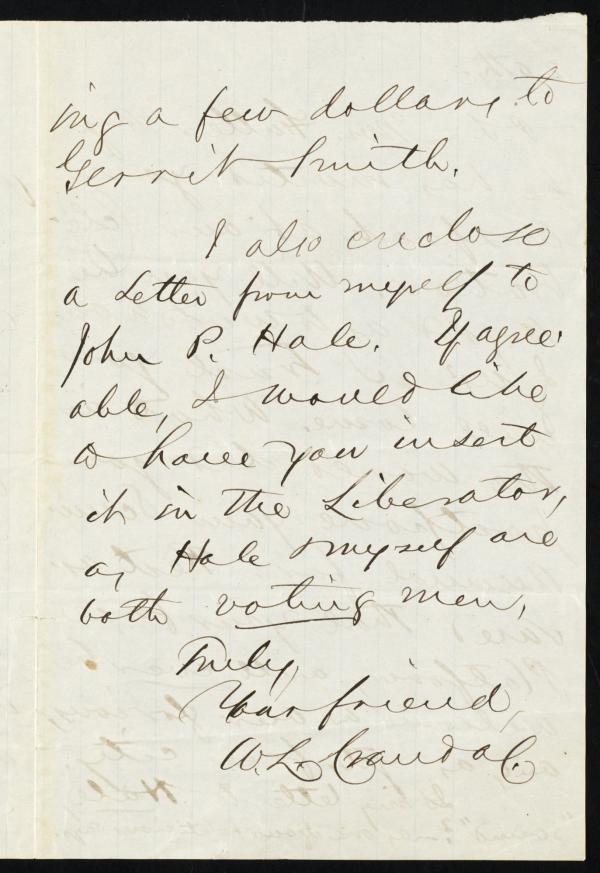 ing a few dollars to
Gerrit Smith.
I also enclose
a Letter from myself to
John P. Hale. If agree-
able, I would like
to have you insert
it in the Liberator,
as Hale & myself are
both voting men,
Truly,
Your friend,
W. L. Crandal.